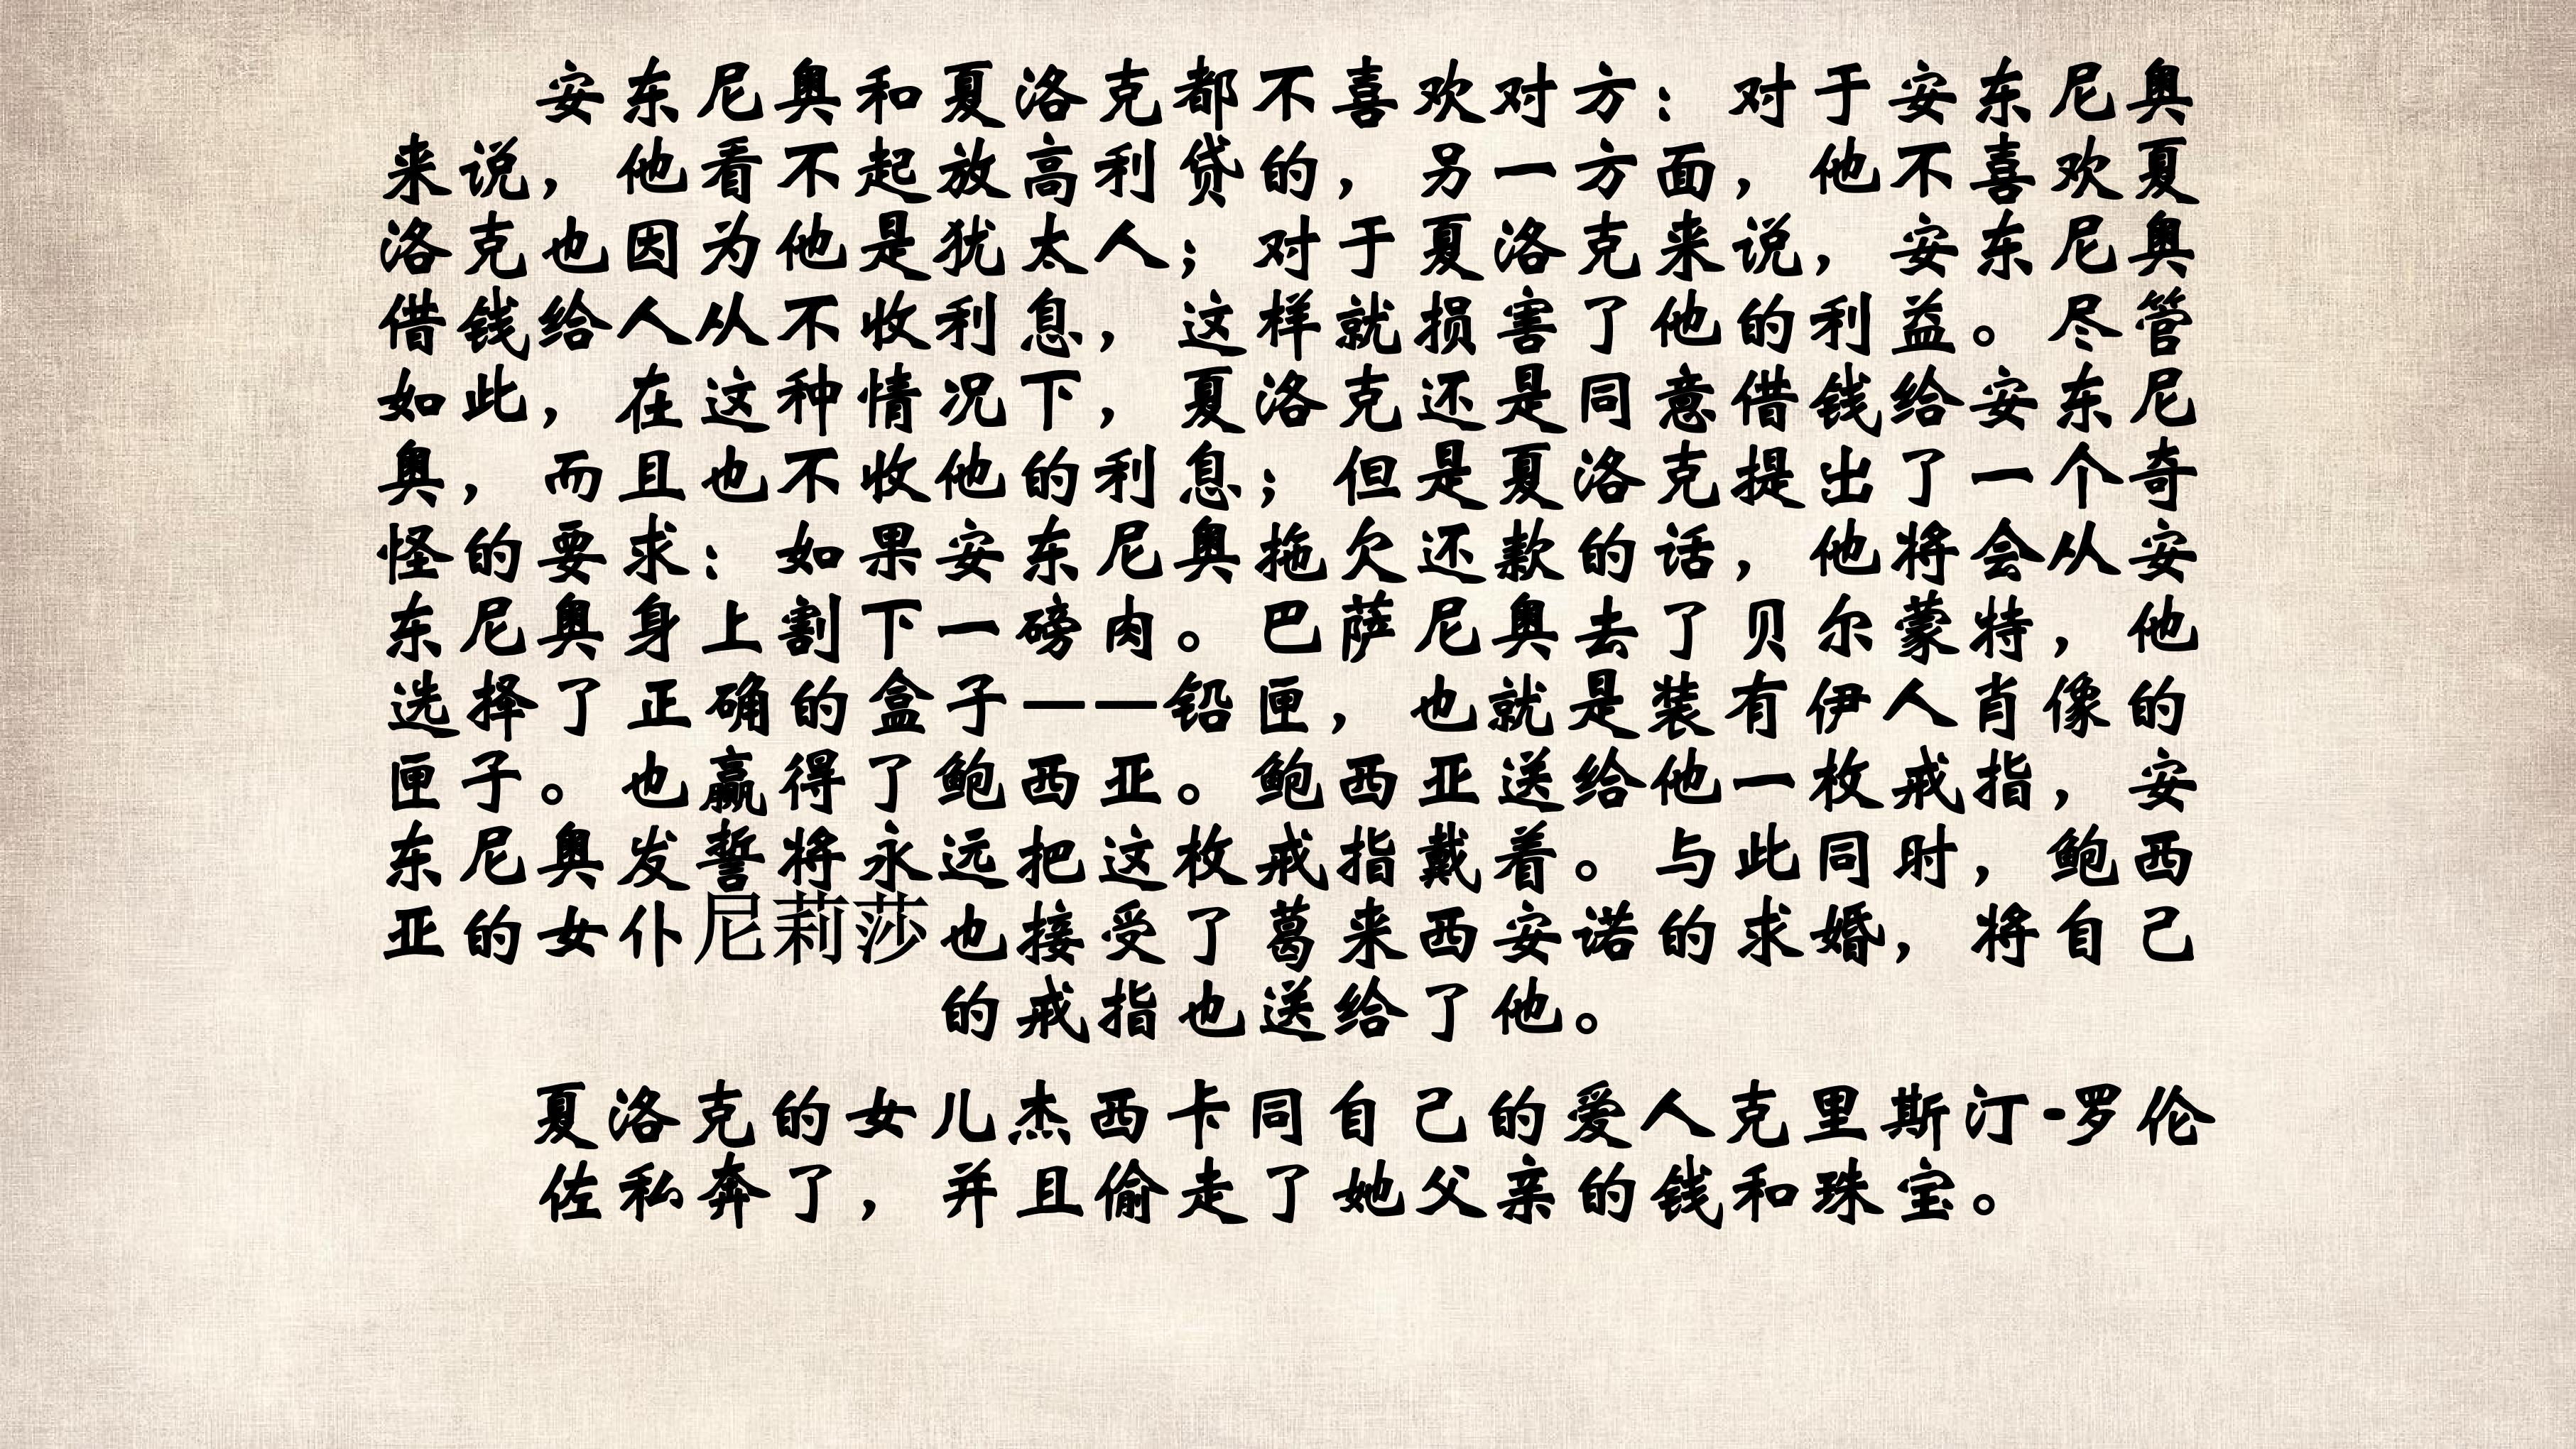 安东尼奥和夏洛克都不喜欢对方：对于安东尼奥
来说，他看不起放高利贷的，另一方面，他不喜欢夏
洛克也因为他是犹太人；对于夏洛克来说，安东尼奥
借钱给人从不收利息，这样就损害了他的利益。尽管
如此，在这种情况下，夏洛克还是同意借钱给安东尼
奥，而且也不收他的利息；但是夏洛克提出了一个奇
怪的要求：如果安东尼奥拖欠还款的话，他将会从安
东尼奥身上割下一磅肉。巴萨尼奥去了贝尔蒙特，他
选择了正确的盒子——铅匣，也就是装有伊人肖像的
匣子。也赢得了鲍西亚。鲍西亚送给他一枚戒指，安
东尼奥发誓将永远把这枚戒指戴着。与此同时，鲍西
亚的女仆尼莉莎也接受了葛来西安诺的求婚，将自己
的戒指也送给了他。
夏洛克的女儿杰西卡同自己的爱人克里斯汀-罗伦
佐私奔了，并且偷走了她父亲的钱和珠宝。